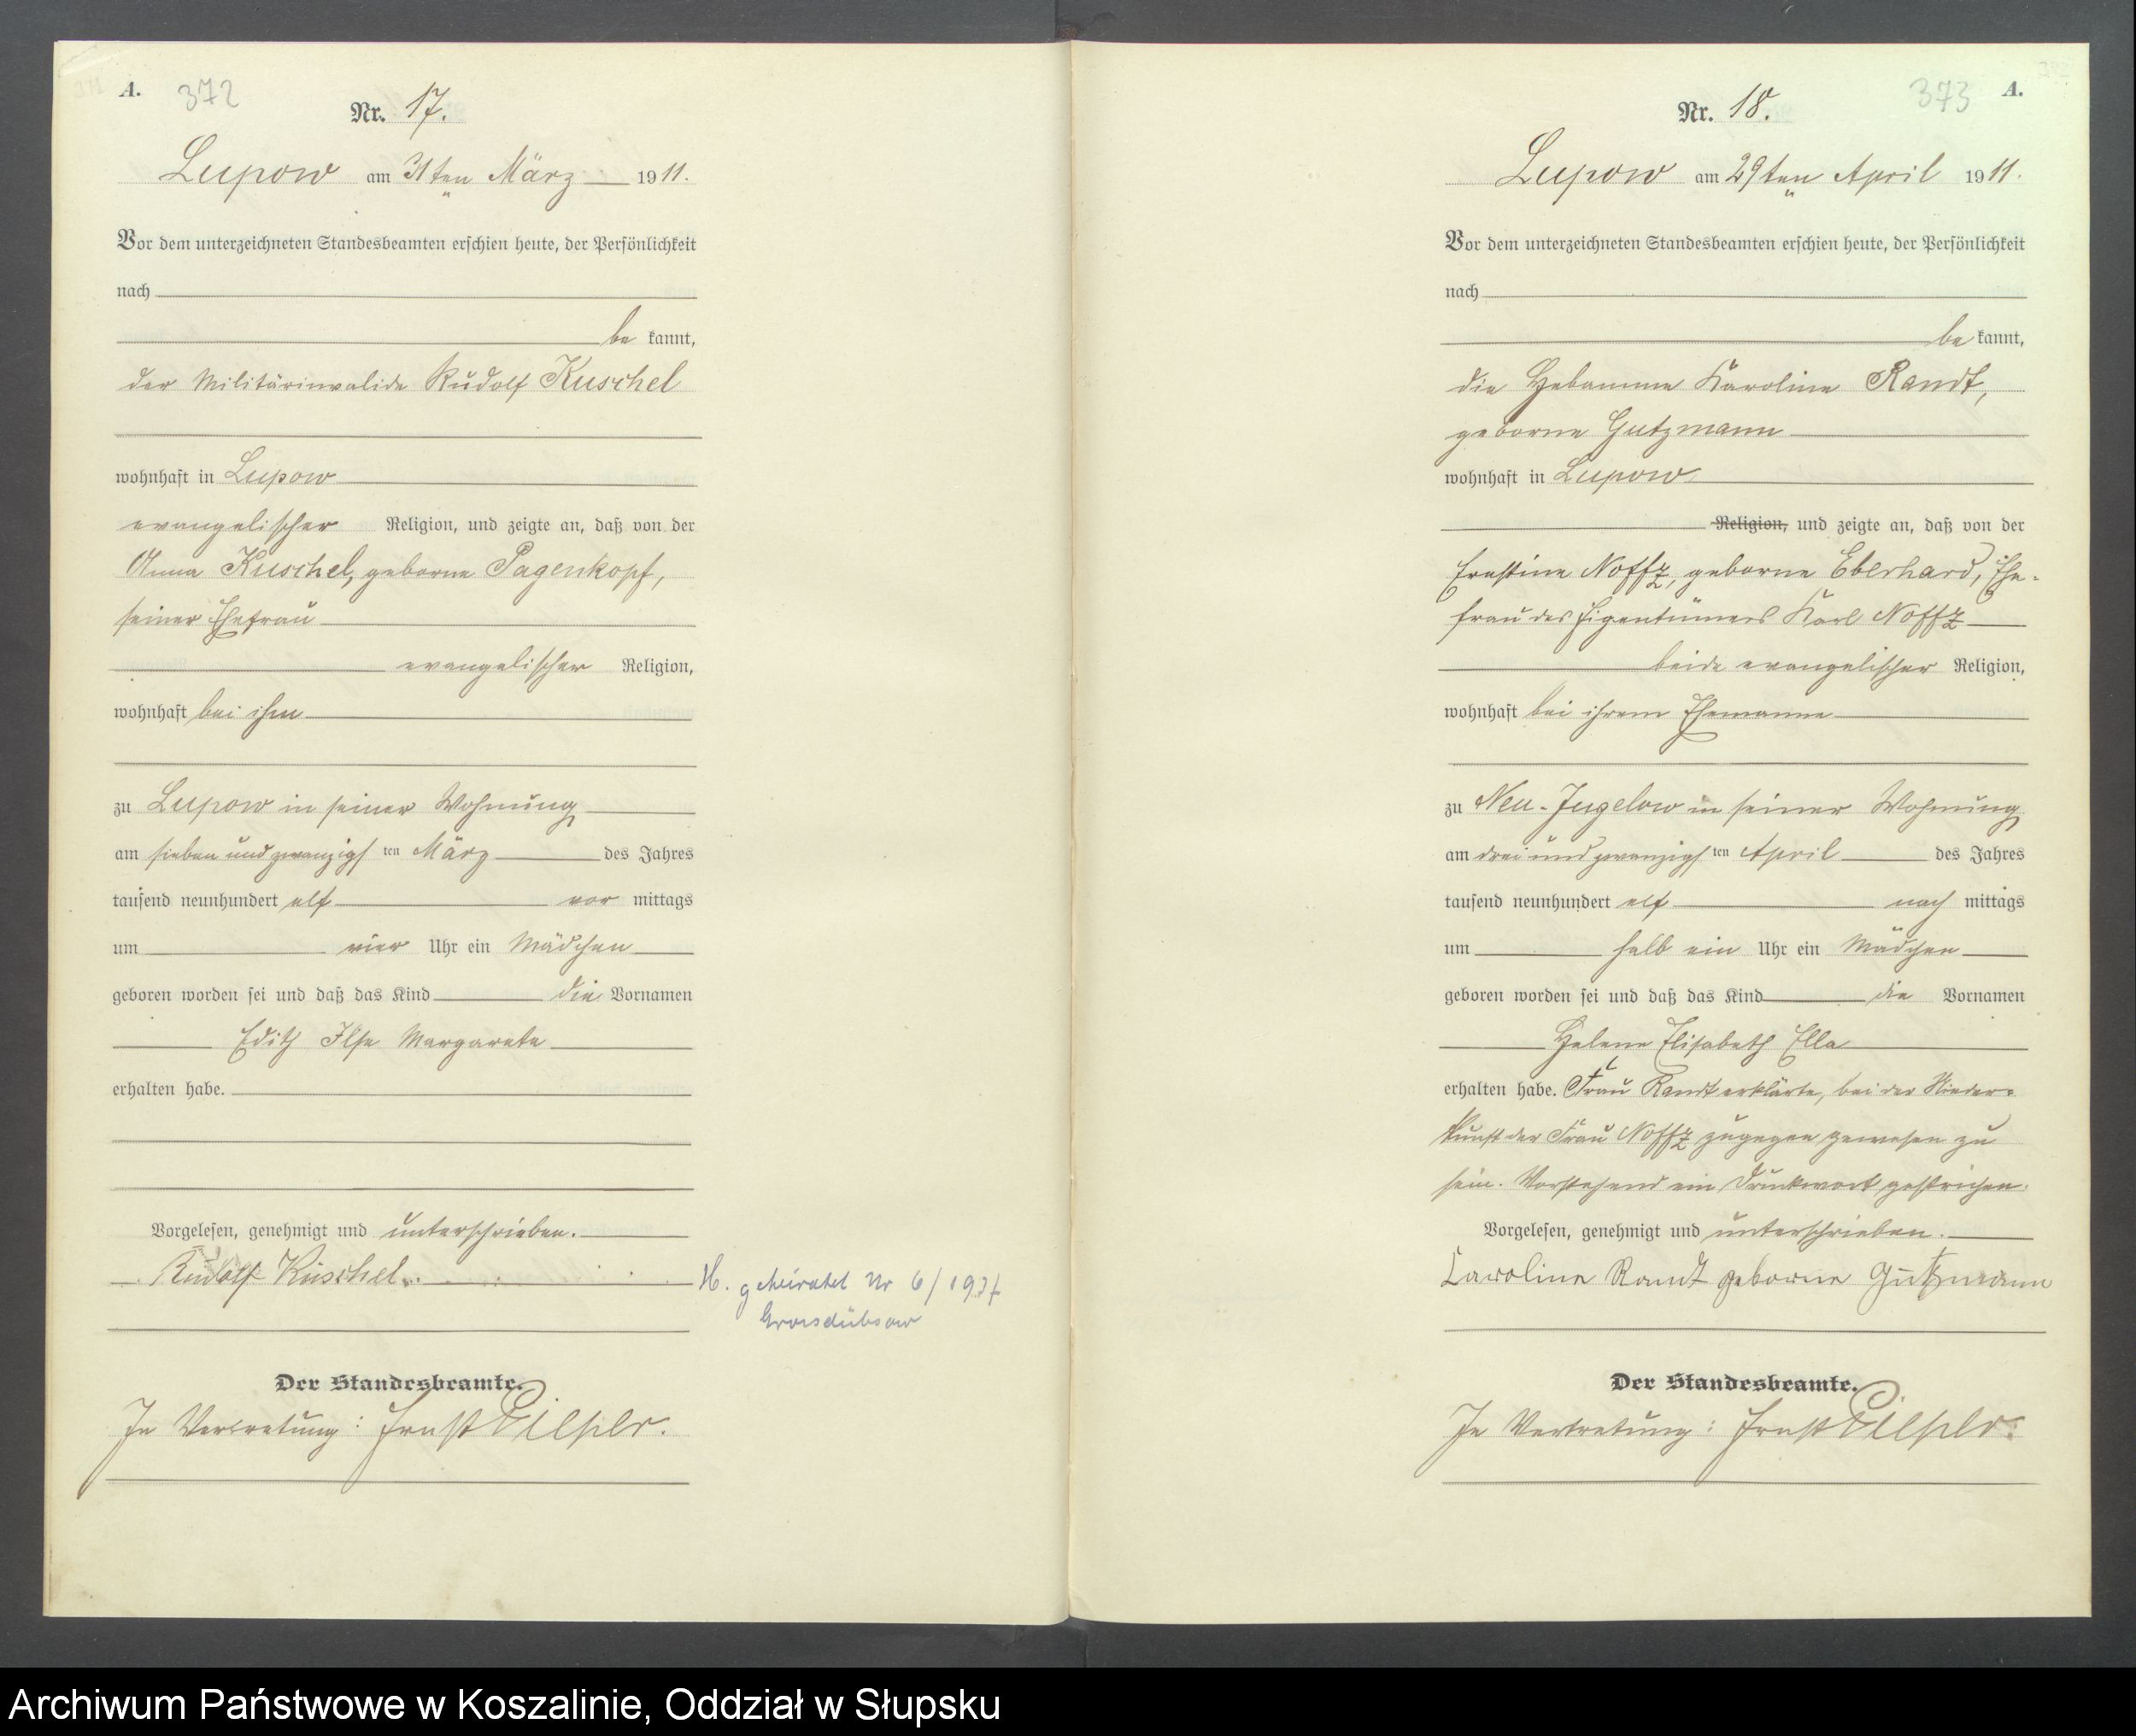 A.
372
Nr. 17.
Lupow am 31ten März 1911.
Vor dem unterzeichneten Standesbeamten erschien heute, der Persönlichkeit
nach
be kannt,
der Militärinvalide Rudolf Kuschel
wohnhaft in Lupow
evangelischer Religion, und zeigte an, daß von der
Anna Kuschel, geborne Pagenkopf,
seiner Ehefrau
evangelischer Religion,
wohnhaft bei ihm
zu Lupow in seiner Wohnung
am sieben und zwanzigsten März des Jahres
tausend neunhundert elf vor mittags
um vier Uhr ein Mädchen
geboren worden sei und daß das Kind die Vornamen
Edith Ilse Margarete
erhalten habe.
Vorgelesen, genehmigt und unterschrieben.
Rudolf Kuschel.
H. geheiratet Nr 6/1937
Der Standesbeamte.
In Vertretung: Ernst
373
A.
Nr. 18.
Lupow am 29ten April 1911.
Vor dem unterzeichneten Standesbeamten erschien heute, der Persönlichkeit
nach
be kannt,
die Hebamme Karoline Randt,
geborne Gutzmann
wohnhaft in Lupow
Religion, und zeigte an, daß von der
Ernstine Noffz, geborne Eberhard, Ehe-
frau des Eigentümers Karl Noffz
beide evangelischer Religion,
wohnhaft bei ihrem Ehemanne
zu Neu-Jugelow in seiner Wohnung
am drei und zwanzigsten April des Jahres
tausend neunhundert elf nach mittags
um halb ein Uhr ein Mädchen
geboren worden sei und daß das Kind die Vornamen
Helene Elisabeth Ella
erhalten habe. Frau Randt erklärte, bei der Nieder-
kunft der Frau Noffz zugegen gewesen zu
sein. Vorstehend ein Druckwort gestrichen.
Vorgelesen, genehmigt und unterschrieben.
Caroline Randt geborne Gutzmann
Der Standesbeamte.
In Vertretung: Ernst
Archiwum Państwowe w Koszalinie, Oddział w Słupsku